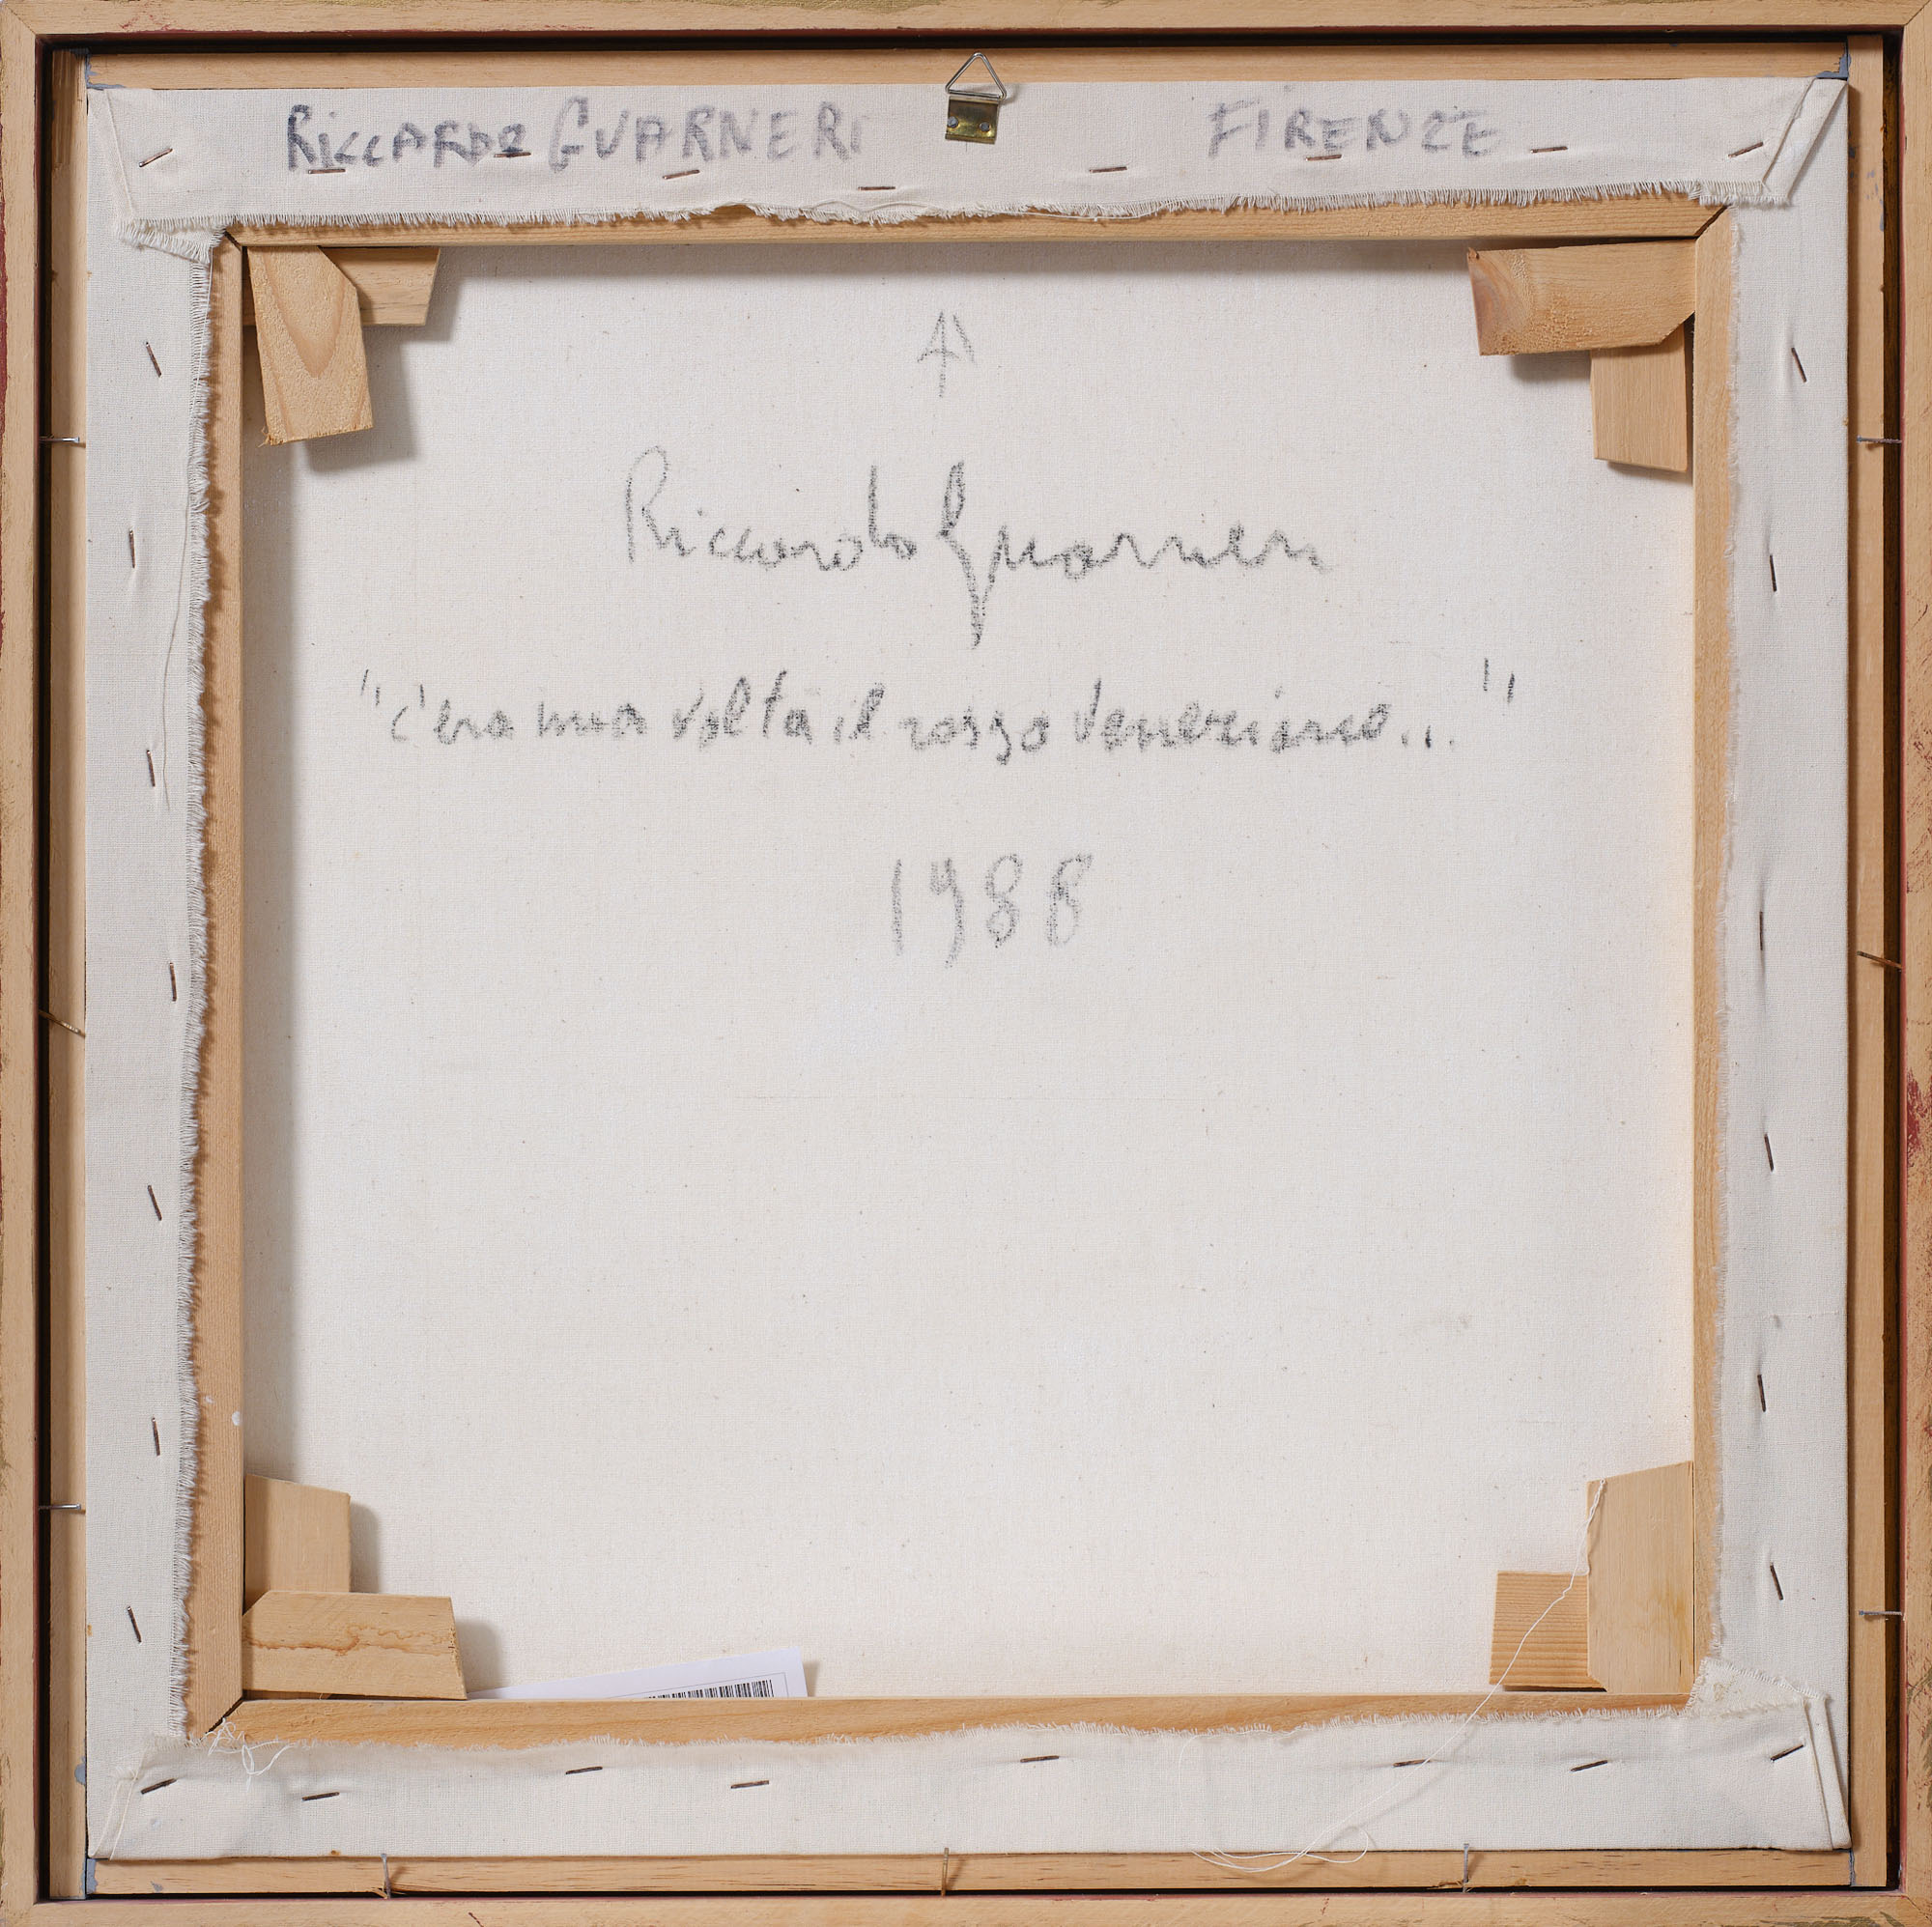 RiccARDO GUARNERI FIRENZE
Riccardo Guarneri
"c'era una volta il rosso veneziano..."
1988